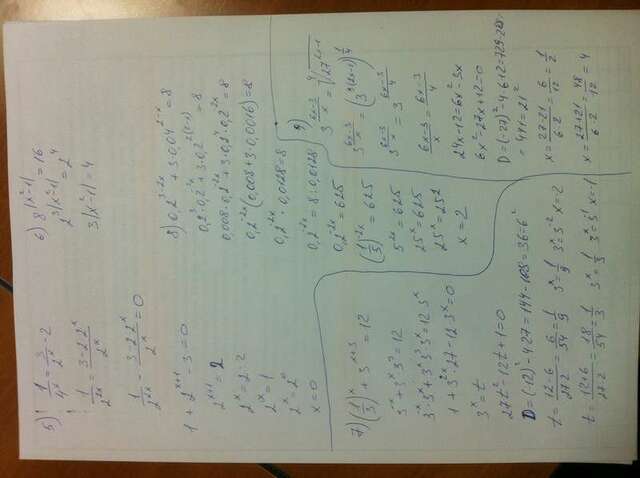 5) 1/4^x = 3/2^x - 2
1/2^{2x} = (3-2·2^x)/2^x
1/2^{2x} - (3-2·2^x)/2^x = 0
1 + 2^{x+1} - 3 = 0
2^{x+1} = 2
2^x = 2:2
2^x = 1
2^x = 2^0
x = 0
6) 8^{|x^2-1|} = 16
2^{3|x^2-1|} = 2^4
3|x^2-1| = 4
8) 0,2^{3-2x} + 3·0,04^{2-x} = 8
0,2^3·0,2^{-2x} + 3·0,2^{2(2-x)} = 8
0,008·0,2^{-2x} + 3·0,2^4·0,2^{-2x} = 8
0,2^{-2x}(0,008+3·0,0016) = 8
0,2^{-2x}·0,0128 = 8
0,2^{-2x} = 8:0,0128
0,2^{-2x} = 625
(1/5)^{-2x} = 625
5^{2x} = 625
25^x = 625
25^x = 25^2
x = 2
7) (1/3)^x + 3^{x+3} = 12
3^{-x} + 3^x 3^3 = 12
3^{-x}·3^x + 3^x 3^3 3^x = 12 3^x
1 + 3^{2x}·27 - 12 3^x = 0
3^x = t
27t^2 - 12t + 1 = 0
D = (-12)^2 - 4·27 = 144 - 108 = 36 = 6^2
t = (12-6)/(27·2) = 6/54 = 1/9 3^x = 1/9 3^x = 3^{-2} x = -2
t = (12+6)/(27·2) = 18/54 = 1/3 3^x = 1/3 3^x = 3^{-1} x = -1
3^{(6x-3)/x} = ⁴√(27^{2x-1})
3^{(6x-3)/x} = (3^{3(2x-1)})^{1/4}
3^{(6x-3)/x} = 3^{(6x-3)/4}
(6x-3)/x = (6x-3)/4
24x - 12 = 6x^2 - 3x
6x^2 - 27x + 12 = 0
D = (-27)^2 - 4·6·12 = 729 - 288 =
= 441 = 21^2
x = (27-21)/(6·2) = 6/12 = 1/2
x = (27+21)/(6·2) = 48/12 = 4